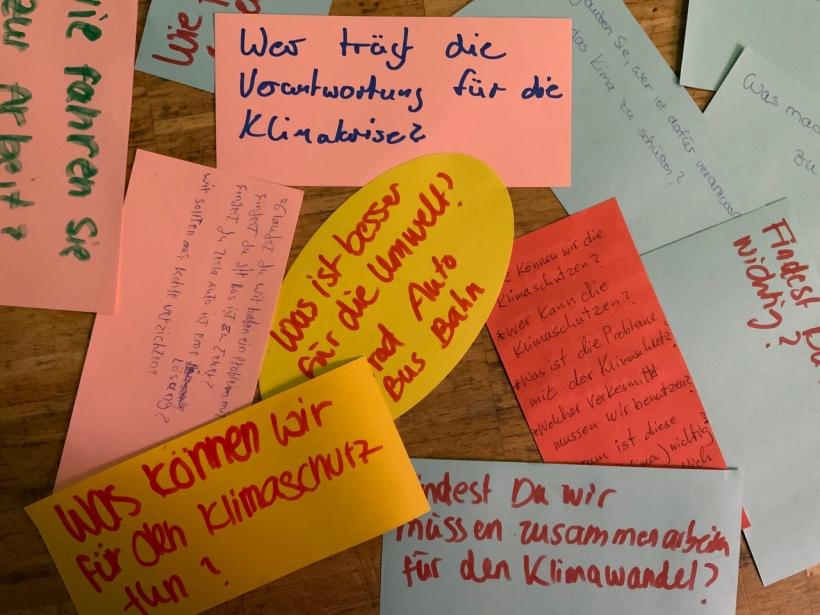 Wie fahren sie
zur Arbeit?
Wie
Wer trägt die
Verantwortung für die
Klimakrise?
Sie, wer ist dafür verantwor
das Klima zu schützen?
Was mac
zu
Findest
wichtig?
wir haben ein Problem
Findest du
Findest du Auto ist eine Lösung?
wir sollten aus verzichten?
Was ist besser
für die Umwelt?
rad Auto
Bus Bahn
Können wir die
Klimaschutzen?
*wer kann die
Klimaschutzen?
*Was ist die Probleme
mit der Klimaschutz?
*Welcher Verkesmittl
mussen wir benutzen?
um ist diese
lima) wichtig?
lich
Was können wir
für den Klimaschutz
tun?
indest Du wir
müssen zusammenarbeiten
für den Klimawandel?